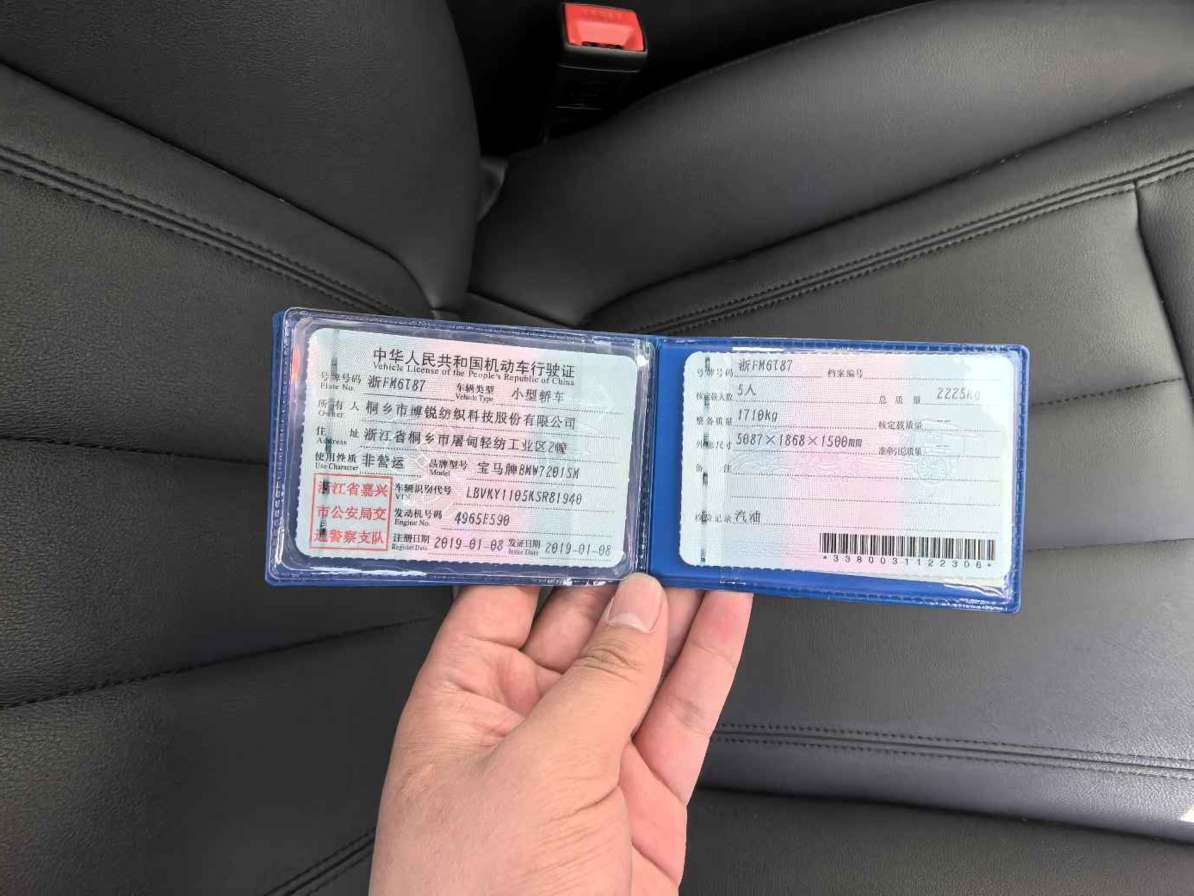 中华人民共和国机动车行驶证
Vehicle License of the People's Republic of China
号牌号码 浙FM6T87 车辆类型 小型轿车
Plate No. Vehicle Type
所有人 桐乡市博锐纺织科技股份有限公司
Owner
住址 浙江省桐乡市屠甸轻纺工业区2幢
Address
使用性质 非营运 品牌型号 宝马牌BMW7201SM
Use Character Model
浙江省嘉兴
市公安局交
通警察支队
车辆识别代号 LBVKY1105KSR81940
VIN
发动机号码 4965E590
Engine No.
注册日期 2019-01-08 发证日期 2019-01-08
Register Date Issue Date
号牌号码 浙FM6T87 档案编号
核定载人数 5人 总质量 2225kg
整备质量 1710kg 核定载质量
外廓尺寸 5087×1868×1500mm 准牵引总质量
备注
检验记录 汽油
*3380031122306*